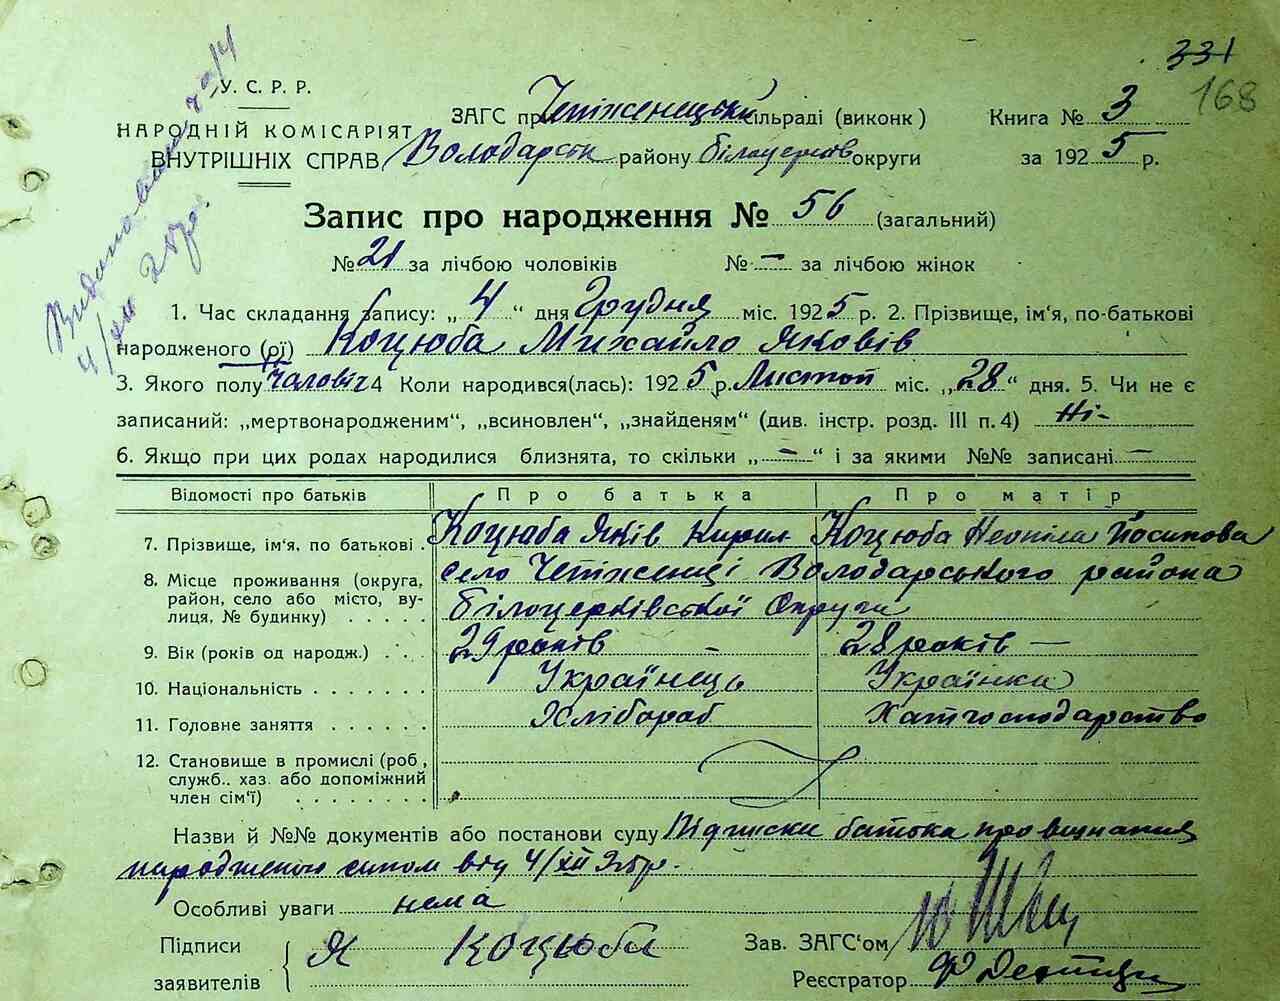 331
168
У. С. Р. Р.
НАРОДНІЙ КОМІСАРІЯТ
ВНУТРІШНІХ СПРАВ
ЗАГС при Чепіженецькій сільраді (виконк)
Книга № 3
Володарськ району Білоцерків округи
за 1925 р.
Запис про народження № 56 (загальний)
№ 21 за лічбою чоловіків № — за лічбою жінок
1. Час складання запису: „ 4 “ дня Грудня міс. 1925 р. 2. Прізвище, ім'я, по-батькові
народженого (ої) Коцюба Михайло Яковів
3. Якого полу чаловіч 4 Коли народився(лась): 1925 р. Листоп міс. „28“ дня. 5. Чи не є
записаний: „мертвонародженим“, „всиновлен“, „знайденям“ (див. інстр. розд. III п. 4) Ні-
6. Якщо при цих родах народилися близнята, то скільки „ – “ і за якими №№ записані —
Відомості про батьків Про батька Про матір
7. Прізвище, ім'я, по батькові . Коцюба Яків Кирил Коцюба Неоніла Йосипова
8. Місце проживання (округа, район, село або місто, вулиця, № будинку) . . . . . село Чепіженці Володарського района
Білоцерківської Округи
9. Вік (років од народж.) . . . 29 років – 28 років —
10. Національність . . . . . . . Українець Українка
11. Головне заняття . . . . . . Хлібороб Хатгосподарство
12. Становище в промислі (роб,
служб.. хаз. або допоміжний
член сім'ї) . . . . . . . .
Назви й №№ документів або постанови суду Підписки батька про визнання
народженого сином від 4/XII 25р.
Особливі уваги нема
Підписи
заявителів
Я Коцюба
Зав. ЗАГС'ом
Реєстратор